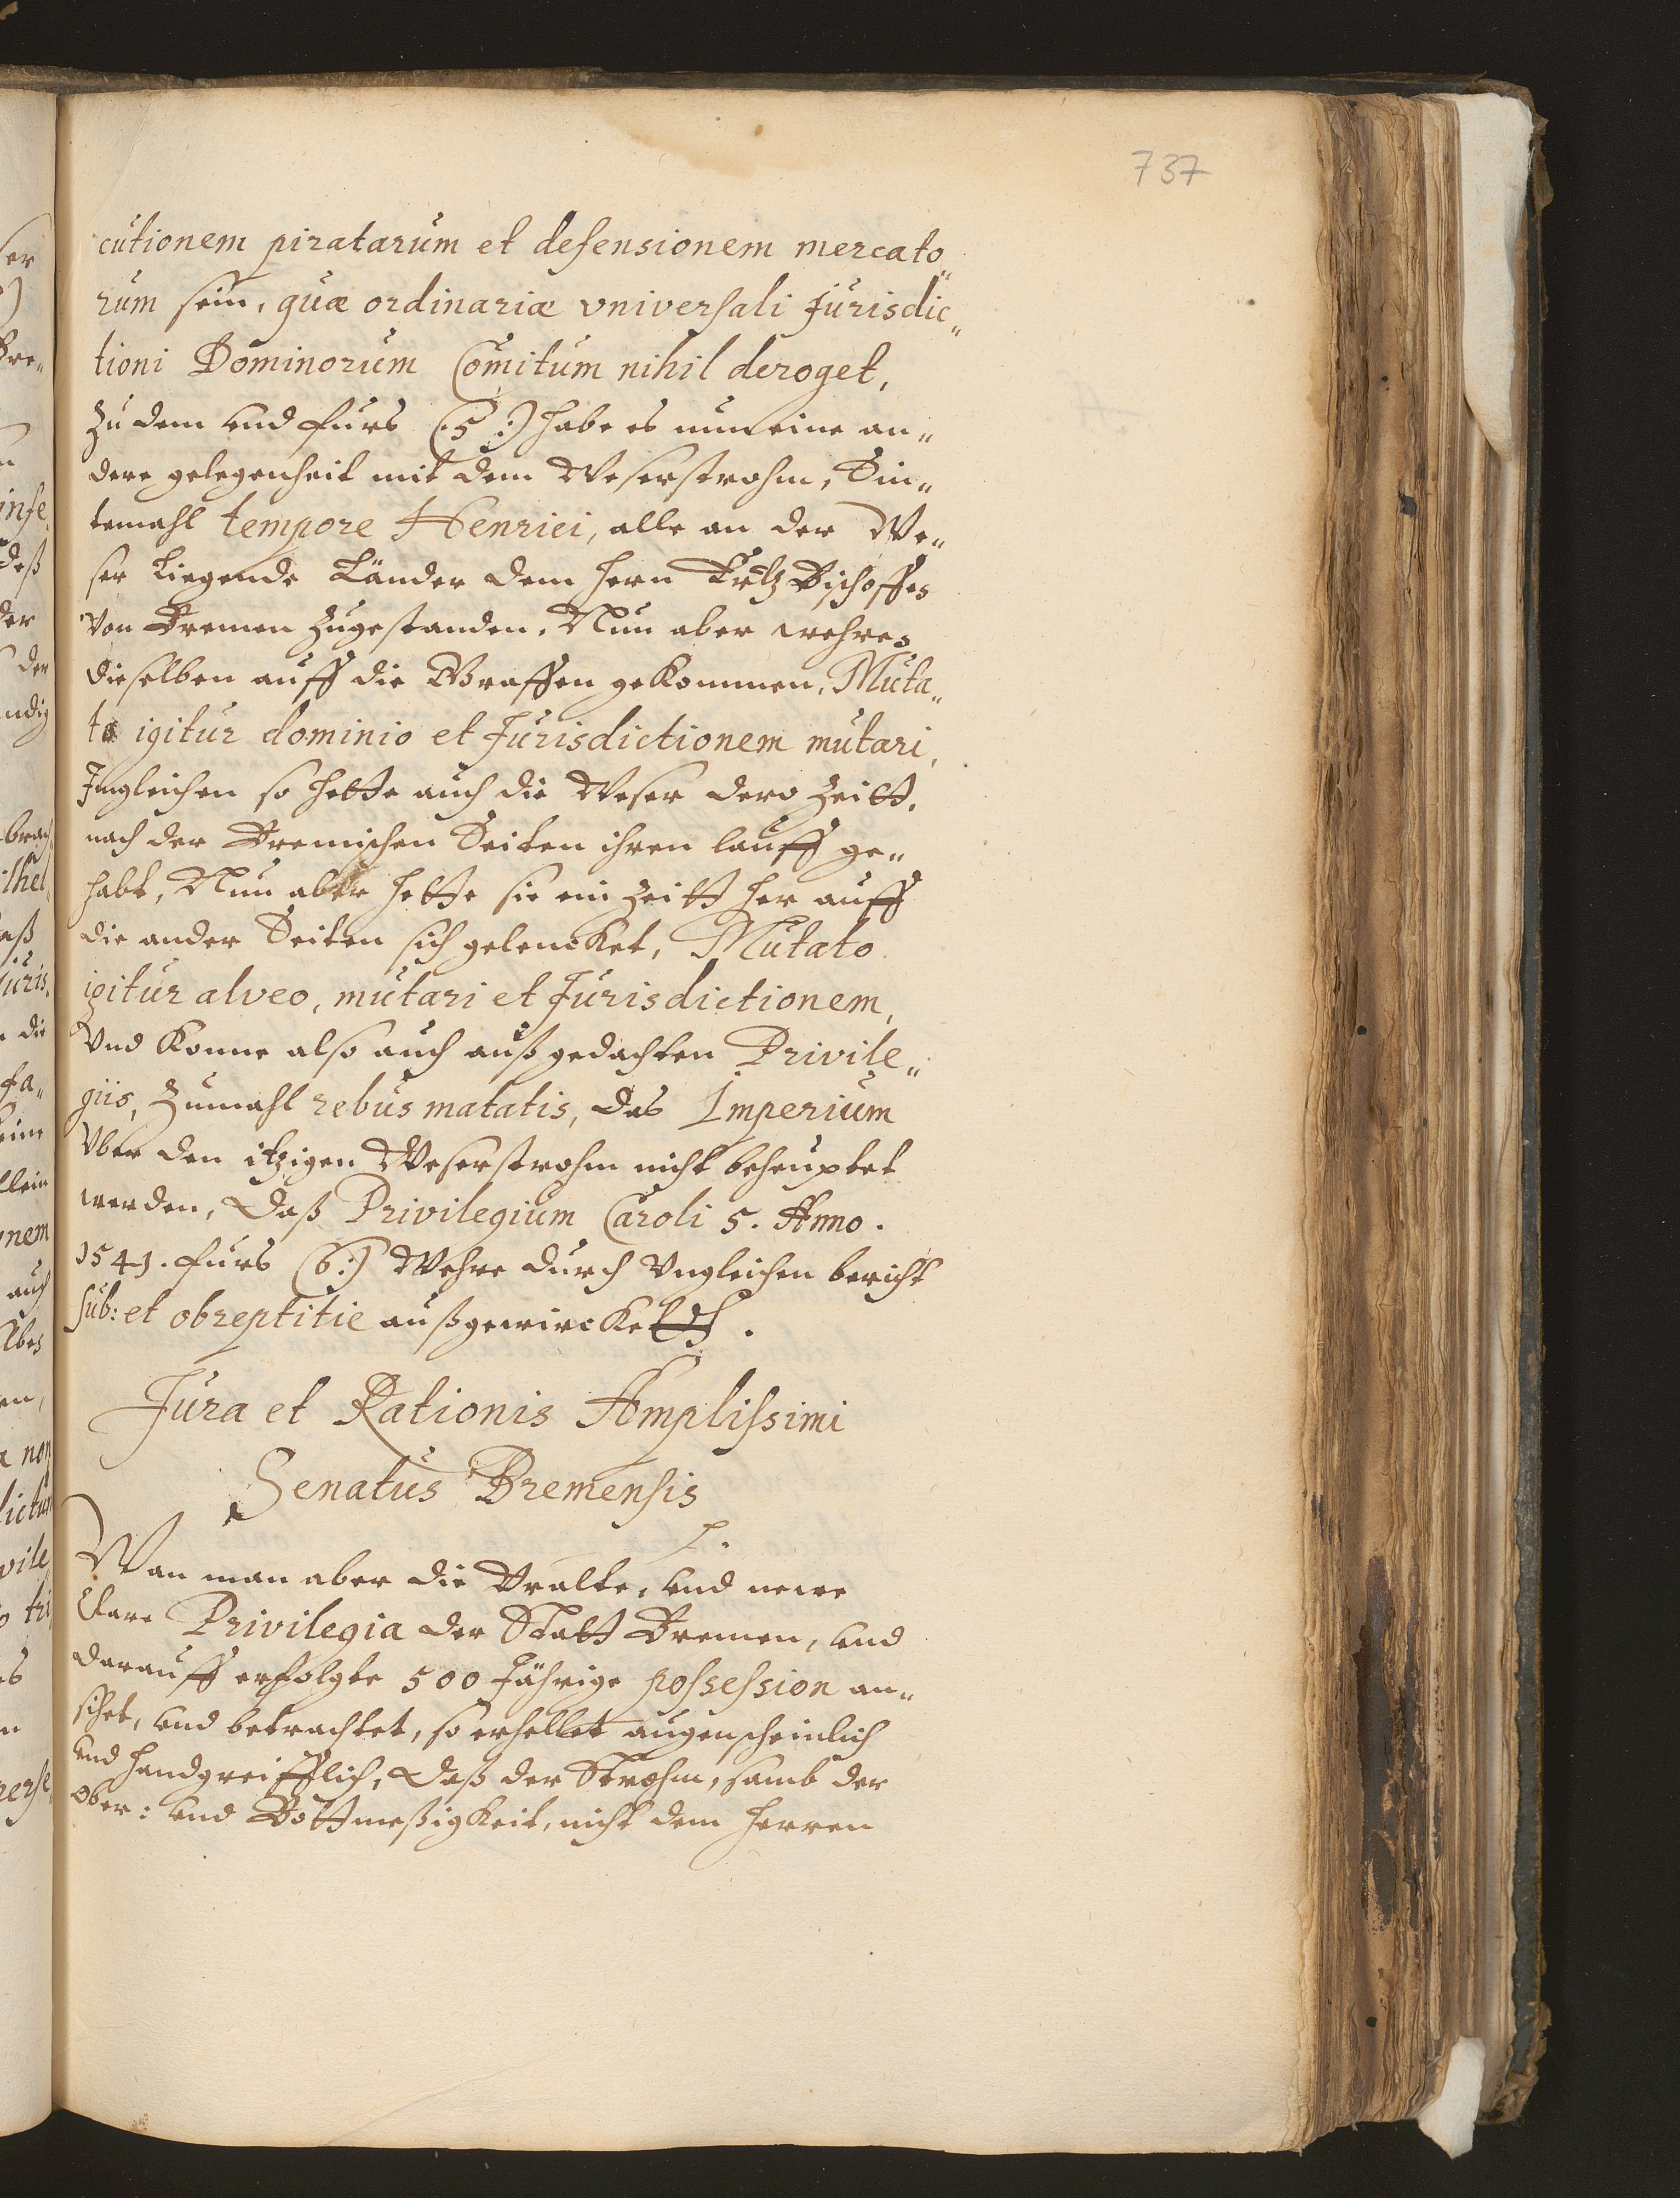 737
cutionem piratarum et defensionem mercato„
rum sein, quæ ordinariæ vniversali Jurisdic„
tioni Dominorum Comitum nihil deroget,
Zu dem und furs (5:) habe es nun eine an„
dere gelegenheit mit dem Weserstrohm, Sin„
temahl tempore Henrici, alle an der We„
ser liegende Länder dem hern Ertz Bischoffes
von Bremen zugestanden. Nun aber wehres
dieselben auff die Graffen gekommen, Muta„
to igitur dominio et Jurisdictionem mutari,
Imgleichen so hette auch die Weser dero Zeitt,
nach der Bremischen Seiten ihren lauff ge„
habt, Nun aber hette sie ein Zeitt her auff
die ander Seiten sich gelencket, Mutato
igitur alveo, mutari et Jurisdictionem,
Und konne also auch auß gedachten Privile„
giis, Zumahl rebus matatis, das Imperium
Vber den itzigen Weserstrohm nicht beheuptet
werden, Daß Privilegium Caroli 5. Anno.
1541. furs (6:) Wehre durch Vngleichen bericht
sub: et obreptitie außgewircket.
Jura et Rationis Amplissimi
Senatus Bremensis
1.
Wan man aber die Vralte, und newe
Clare Privilegia der Statt Bremen, und
darauff erfolgte 500 Jährige possession an„
sihet, und betrachtet, so erhellet augenscheinlich
und handgreifflich, Daß der Strohm, samb der
Ober: und Bottmeßigkeit, nicht dem Herren